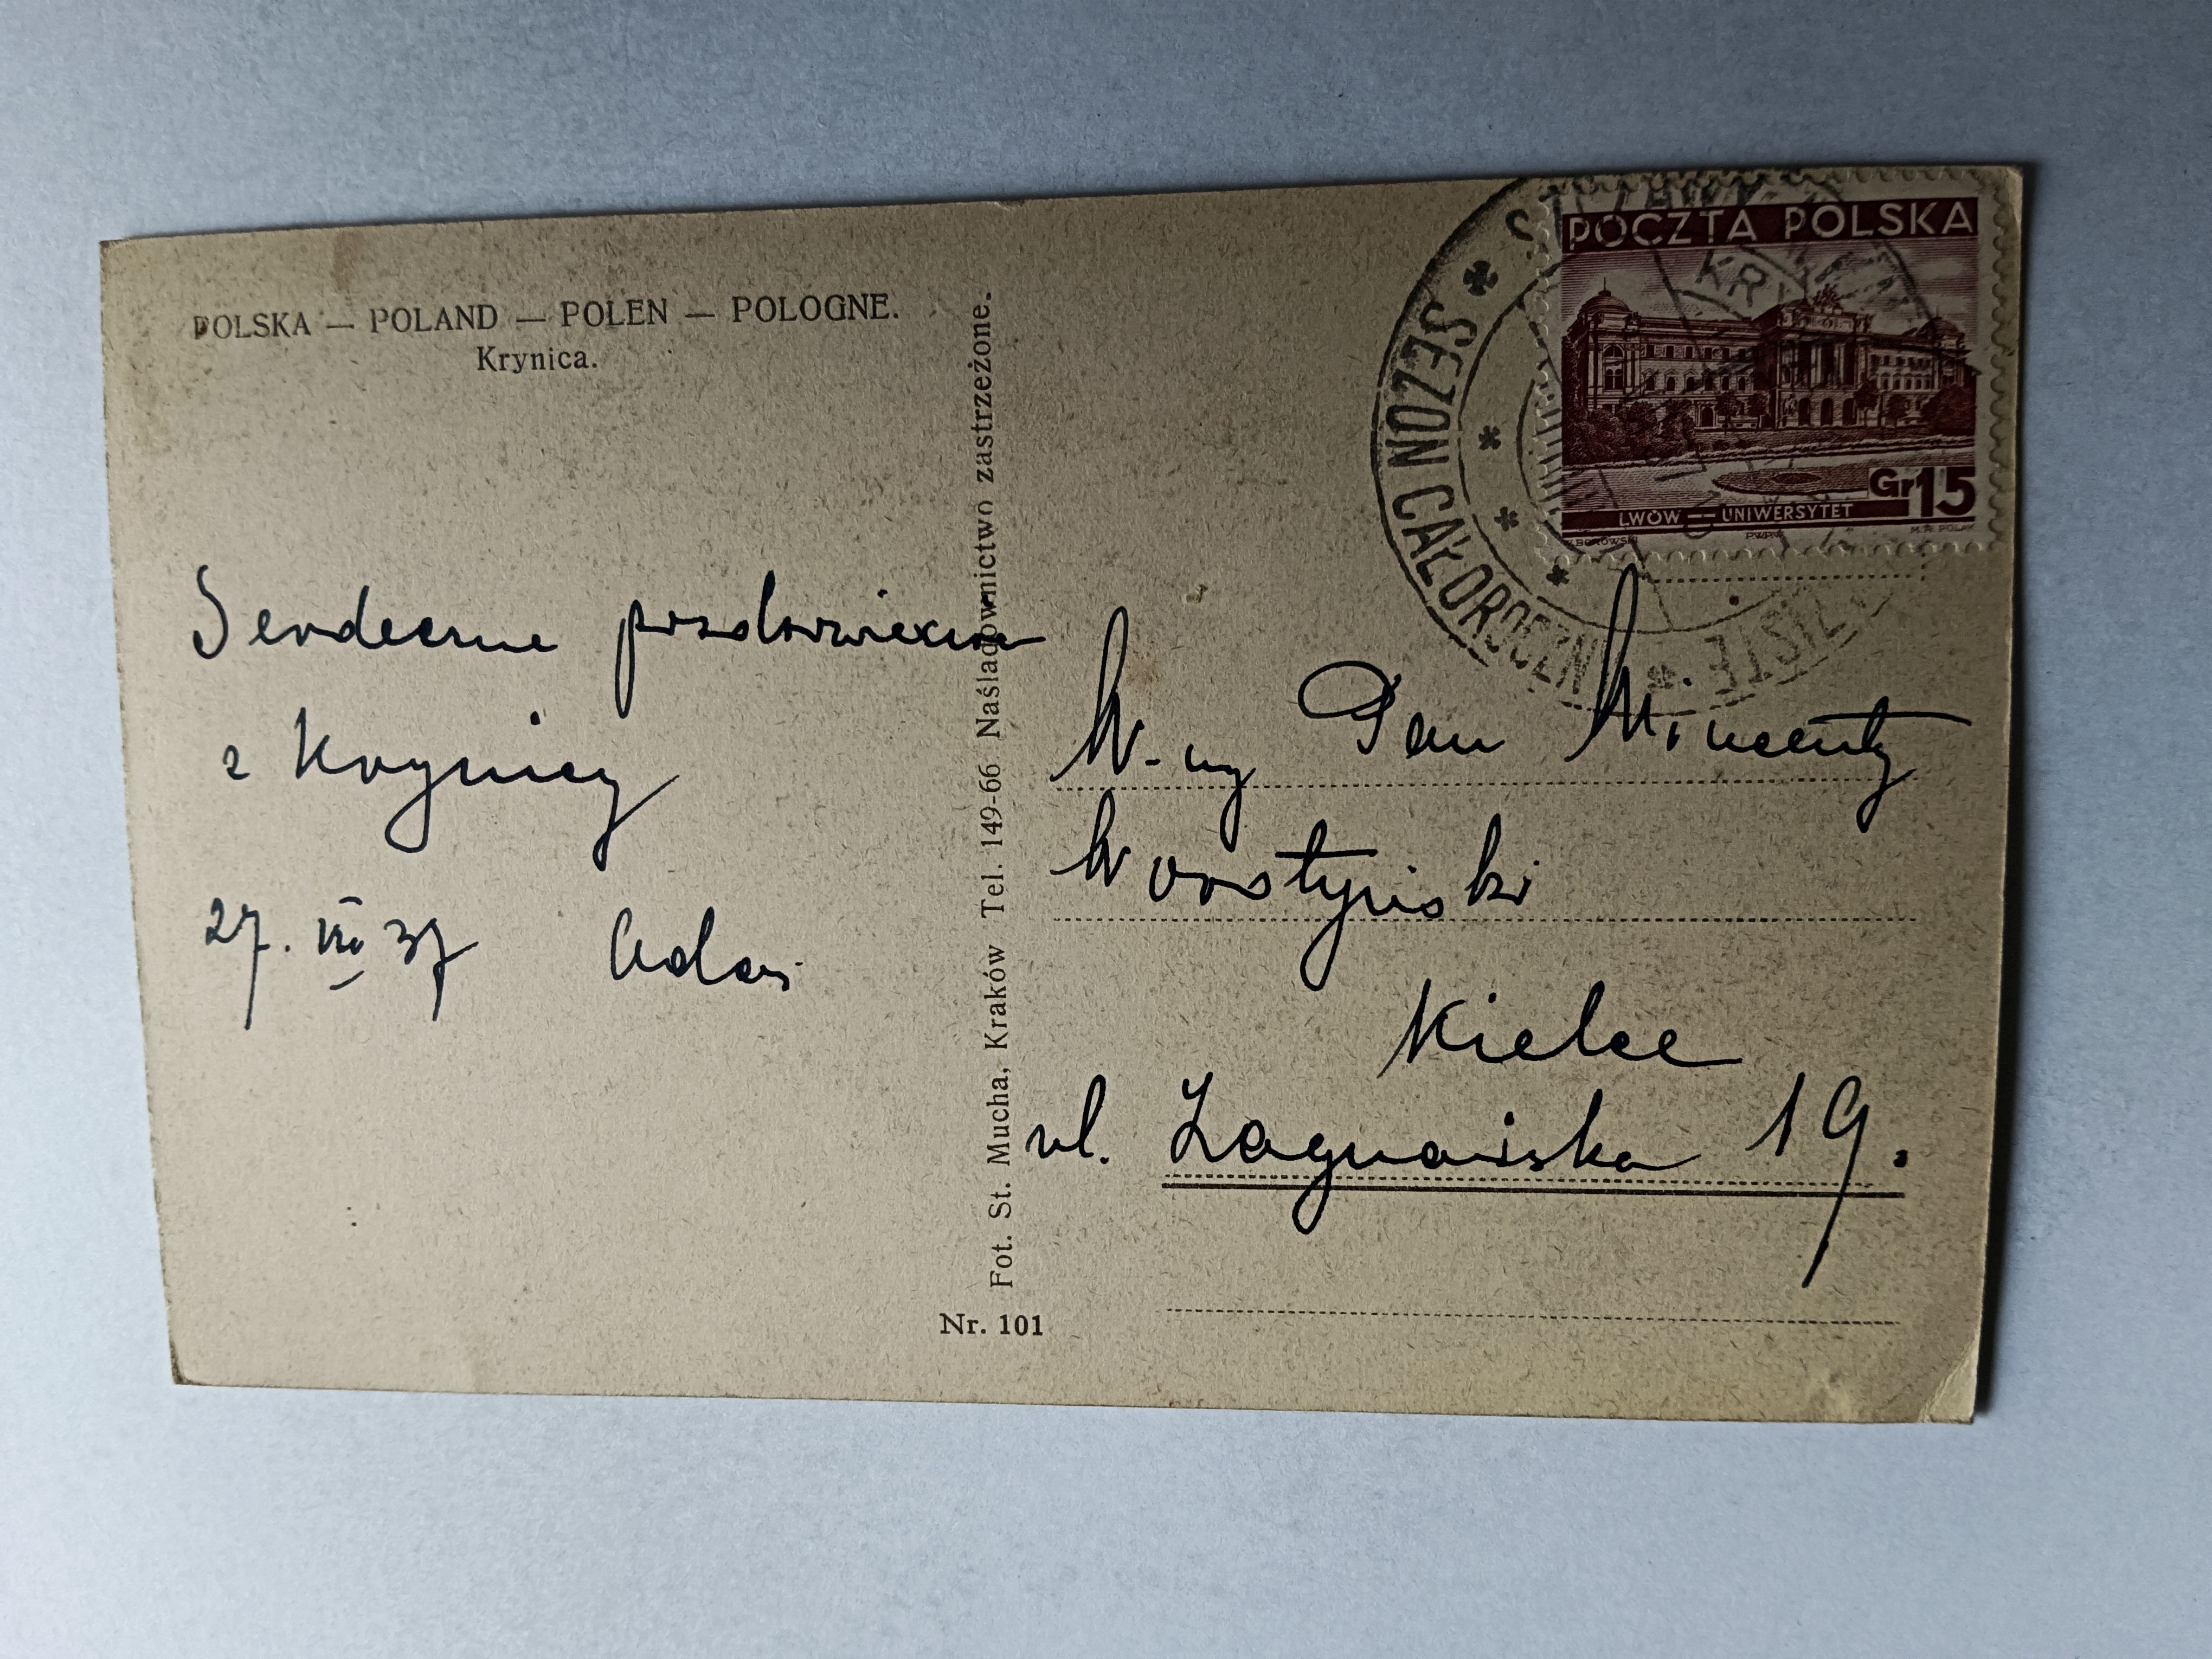 POLSKA — POLAND — POLEN — POLOGNE.
Krynica.
Serdeczne pozdrowienia
z Krynicy
27. VII 37 Adaś
Fot. St. Mucha, Kraków Tel. 149-66 Naśladownictwo zastrzeżone.
Nr. 101
SEZON CAŁOROCZN
POCZTA POLSKA
Gr 15
LWÓW — UNIWERSYTET
W-ny Pan Wincenty
Worstyński
Kielce
ul. Zagnańska 19.